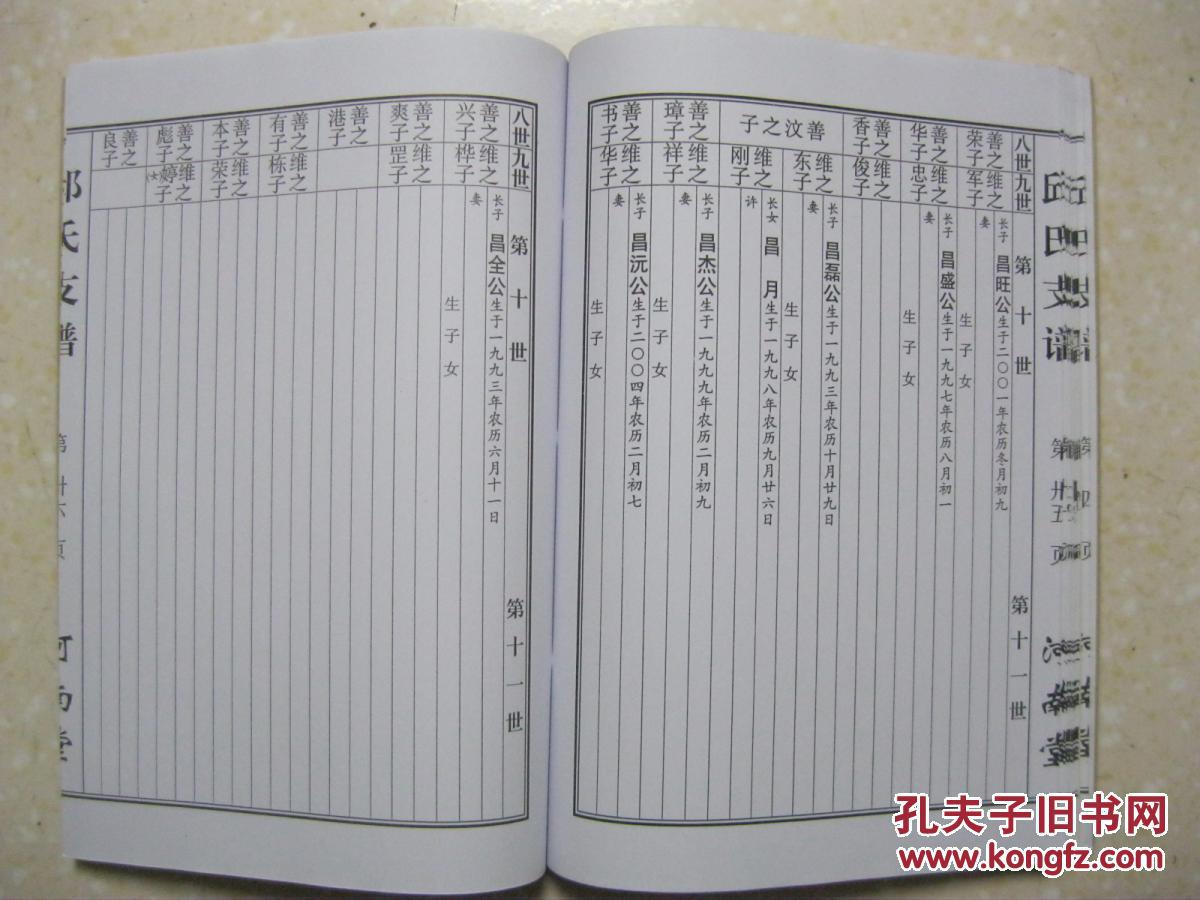 邱氏支谱 第卅五页 河南堂
八世 九世 第十世 第十一世
善之 维之 长子 昌旺公生于二〇〇一年农历冬月初九
荣子 军子 妻 生子女
善之 维之 长子 昌盛公生于一九九七年农历八月初一
华子 忠子 妻 生子女
善之 维之
香子 俊子
善汶之子
维之 长子 昌磊公生于一九九三年农历十月廿九日
东子 妻 生子女
维之 长女 昌月生于一九九八年农历九月廿六日
刚子 许
善之 维之 长子 昌杰公生于一九九九年农历二月初九
璋子 祥子 妻 生子女
善之 维之 长子 昌沅公生于二〇〇四年农历二月初七
书子 华子 妻 生子女
八世 九世 第十世 第十一世
善之 维之 长子 昌全公生于一九九三年农历六月十一日
兴子 桦子 妻 生子女
善之 维之
爽子 罡子
善之
港子
善之 维之
有子 栋子
善之 维之
本子 荣子
善之 维之
彪子 婷子(女)
善之
良子
氏支谱 第卅六页 河南堂
孔夫子旧书网
www.kongfz.com